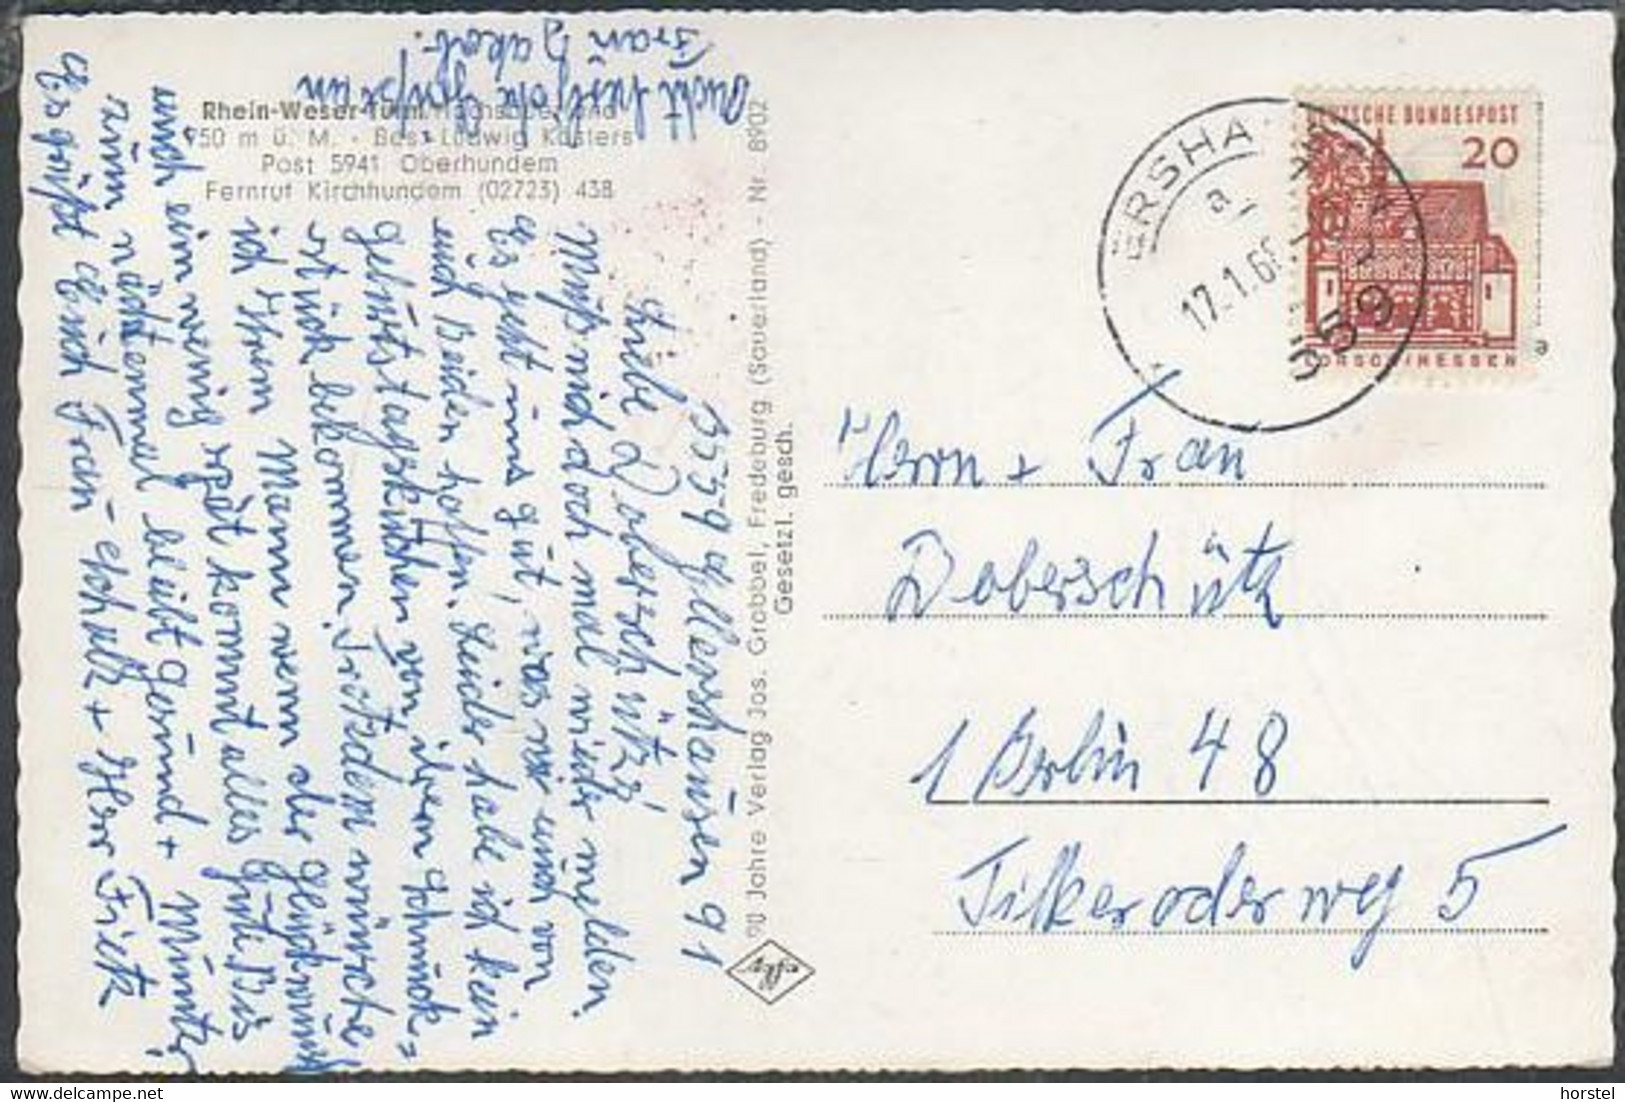 Rhein-Weser-Turm
650 m ü. M. - Bes. Ludwig Kösters
Post 5941 Oberhundem
Fernruf Kirchhundem (02723) 438
5559 91
Liebe Doberschütz!
Muß mich doch mal wieder melden.
Es geht uns gut, was wir auch von
euch Beiden hoffen. Leider habe ich kein
Geburtstagskärtchen von ihren Schmuck=
stück bekommen. Trotzdem wünsche
ich Ihrem Mann wenn der Glückwunsch
auch ein wenig spät kommt alles Gute. Bis
zum nächtenmal bleibt gesund + munter!
Es grüßt Euch Frau Scholz + Herr Fietz
Auch herzliche Grüße an
Frau Jakob.
90 Jahre Verlag Jos. Grobbel, Fredeburg (Sauerland) - Nr. 8902
Gesetzl. gesch.
DEUTSCHE BUNDESPOST
20
LORSCH/HESSEN
ERSHA
a
17.1.66
559
Herrn + Frau
Doberschütz
1 Berlin 48
Tilkeroderweg 5
e
horstel